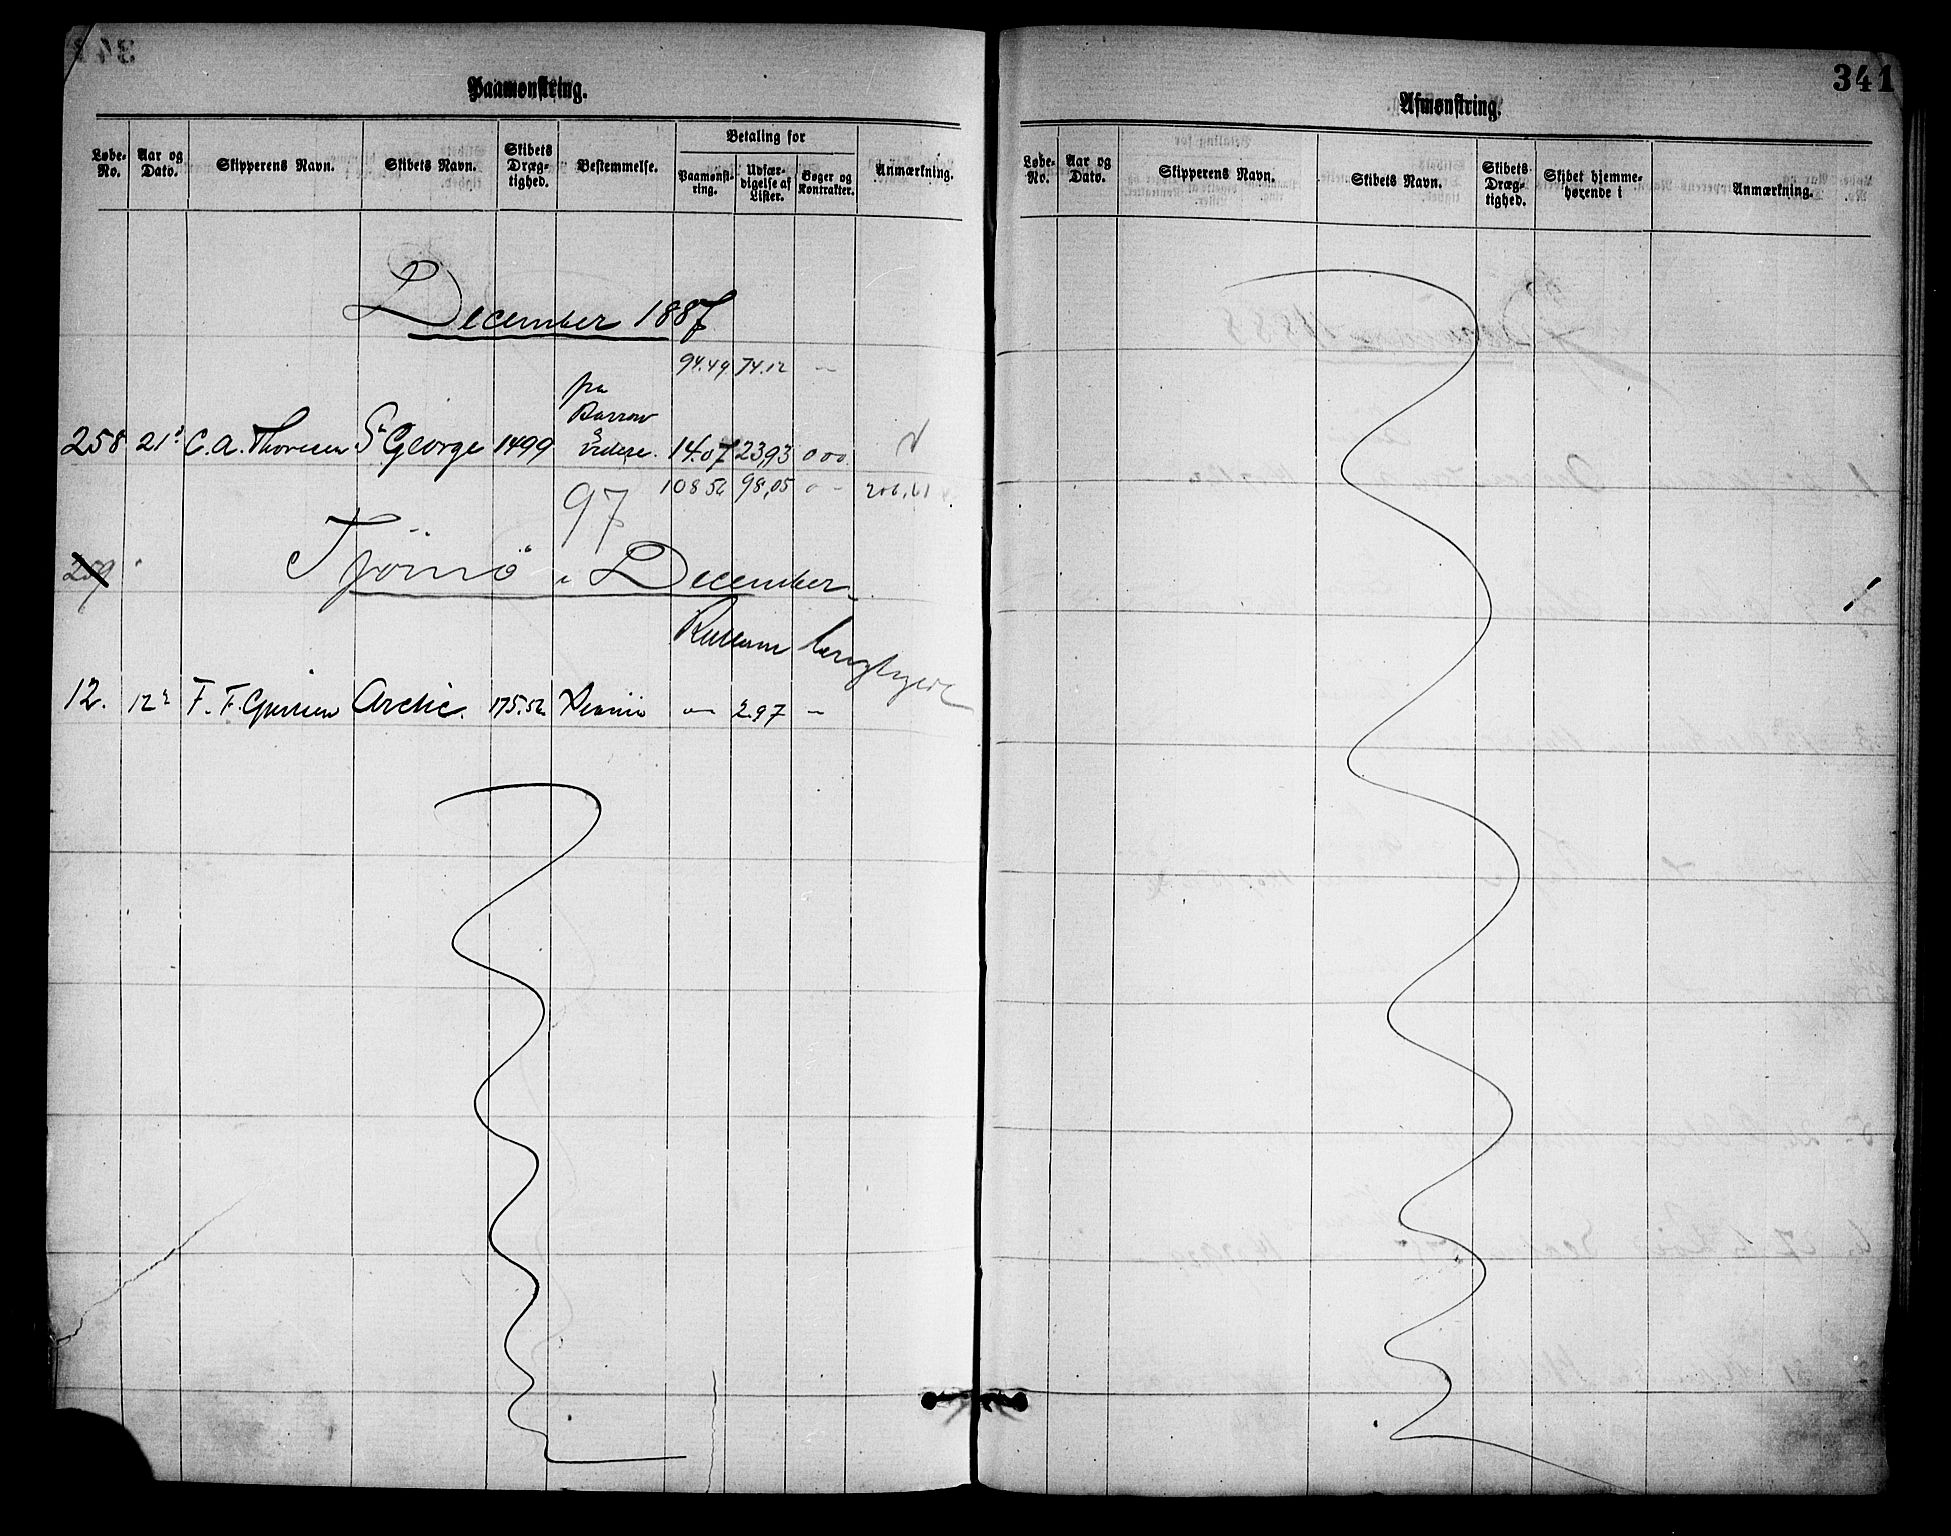 Paamønstring.
Løbe-No. Aar og Dato. Skipperens Navn. Skibets Navn. Skibets Dræg-tighed. Bestemmelse. Betaling for Paamønst-ring. Udfær-digelse af Lister. Bøger og Kontrakter. Anmærkning.
December 1887
94.49 74.12 —
fra
Barrow
&
258 21 C. A. Thoresen St George 1499 videre. 14.07 23,93
108 56 98,05 206,61
97
259
Tjømø i December
12. 12 F. F. Arctic. 175.56 — 2.97 —
341
Afmønstring.
Løbe-No. Aar og Dato. Skipperens Navn. Skibets Navn. Skibets Dræg-tighed. Skibet hjemme-hørende i Anmærkning.